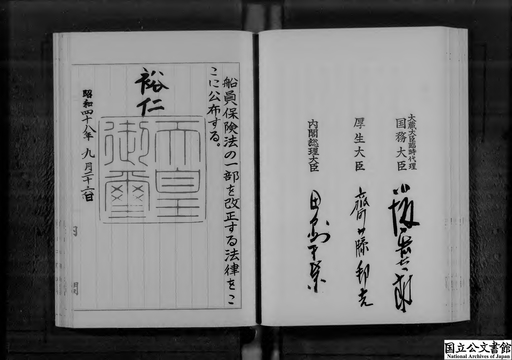 船員保険法の一部を改正する法律をこ
こに公布する。
裕仁
天皇
御璽
昭和四十八年九月二十六日
内閣総理大臣
田中角栄
厚生大臣
齋藤邦吉
大蔵大臣臨時代理
国務大臣
国立公文書館
National Archives of Japan